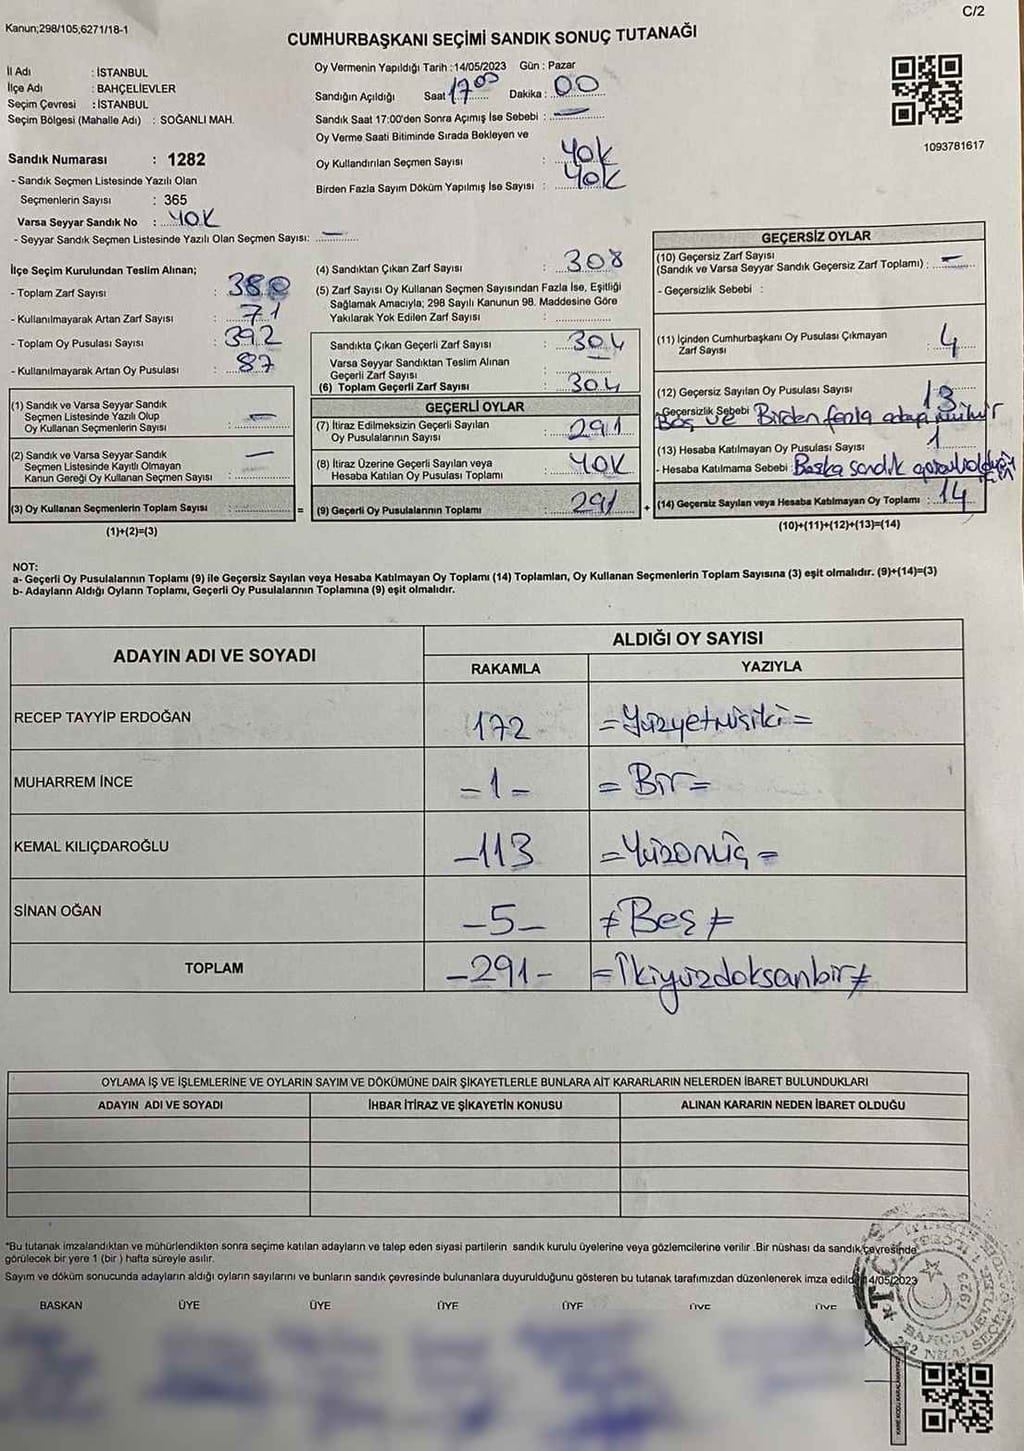 Kanun;298/105,6271/18-1
C/2
CUMHURBAŞKANI SEÇİMİ SANDIK SONUÇ TUTANAĞI
İl Adı : İSTANBUL
İlçe Adı : BAHÇELİEVLER
Seçim Çevresi : İSTANBUL
Seçim Bölgesi (Mahalle Adı) : SOĞANLI MAH.
Sandık Numarası : 1282
- Sandık Seçmen Listesinde Yazılı Olan
Seçmenlerin Sayısı : 365
Varsa Seyyar Sandık No : YOK
- Seyyar Sandık Seçmen Listesinde Yazılı Olan Seçmen Sayısı: —
Oy Vermenin Yapıldığı Tarih : 14/05/2023 Gün : Pazar
Sandığın Açıldığı Saat 17 00 Dakika : 00
Sandık Saat 17:00'den Sonra Açımış İse Sebebi : —
Oy Verme Saati Bitiminde Sırada Bekleyen ve
Oy Kullandırılan Seçmen Sayısı : YOK
Birden Fazla Sayım Döküm Yapılmış İse Sayısı : YOK
1093781617
İlçe Seçim Kurulundan Teslim Alınan;
- Toplam Zarf Sayısı : 380
- Kullanılmayarak Artan Zarf Sayısı : 71
- Toplam Oy Pusulası Sayısı : 392
- Kullanılmayarak Artan Oy Pusulası : 87
(1) Sandık ve Varsa Seyyar Sandık
Seçmen Listesinde Yazılı Olup
Oy Kullanan Seçmenlerin Sayısı : —
(2) Sandık ve Varsa Seyyar Sandık
Seçmen Listesinde Kayıtlı Olmayan
Kanun Gereği Oy Kullanan Seçmen Sayısı : —
(3) Oy Kullanan Seçmenlerin Toplam Sayısı :
(1)+(2)=(3)
(4) Sandıktan Çıkan Zarf Sayısı : 308
(5) Zarf Sayısı Oy Kullanan Seçmen Sayısından Fazla İse, Eşitliği
Sağlamak Amacıyla; 298 Sayılı Kanunun 98. Maddesine Göre
Yakılarak Yok Edilen Zarf Sayısı :
Sandıkta Çıkan Geçerli Zarf Sayısı : 304
Varsa Seyyar Sandıktan Teslim Alınan
Geçerli Zarf Sayısı : —
(6) Toplam Geçerli Zarf Sayısı : 304
GEÇERLİ OYLAR
(7) İtiraz Edilmeksizin Geçerli Sayılan
Oy Pusulalarının Sayısı : 291
(8) İtiraz Üzerine Geçerli Sayılan veya
Hesaba Katılan Oy Pusulası Toplamı : YOK
= (9) Geçerli Oy Pusulalarının Toplamı : 291
GEÇERSİZ OYLAR
(10) Geçersiz Zarf Sayısı
(Sandık ve Varsa Seyyar Sandık Geçersiz Zarf Toplamı) : —
- Geçersizlik Sebebi :
(11) İçinden Cumhurbaşkanı Oy Pusulası Çıkmayan
Zarf Sayısı : 4
(12) Geçersiz Sayılan Oy Pusulası Sayısı 13
- Geçersizlik Sebebi Boş ve Birden fazla adaya mühür
(13) Hesaba Katılmayan Oy Pusulası Sayısı 1
- Hesaba Katılmama Sebebi Başka sandık
+ (14) Geçersiz Sayılan veya Hesaba Katılmayan Oy Toplamı : 14
(10)+(11)+(12)+(13)=(14)
NOT:
a- Geçerli Oy Pusulalarının Toplamı (9) ile Geçersiz Sayılan veya Hesaba Katılmayan Oy Toplamı (14) Toplamları, Oy Kullanan Seçmenlerin Toplam Sayısına (3) eşit olmalıdır. (9)+(14)=(3)
b- Adayların Aldığı Oyların Toplamı, Geçerli Oy Pusulalarının Toplamına (9) eşit olmalıdır.
ADAYIN ADI VE SOYADI
ALDIĞI OY SAYISI
RAKAMLA YAZIYLA
RECEP TAYYİP ERDOĞAN 172 =Yüzyetmişiki=
MUHARREM İNCE -1- =Bir=
KEMAL KILIÇDAROĞLU -113 =Yüzonüç=
SİNAN OĞAN -5- ≠Beş≠
TOPLAM -291- =İkiyüzdoksanbir≠
OYLAMA İŞ VE İŞLEMLERİNE VE OYLARIN SAYIM VE DÖKÜMÜNE DAİR ŞİKAYETLERLE BUNLARA AİT KARARLARIN NELERDEN İBARET BULUNDUKLARI
ADAYIN ADI VE SOYADI İHBAR İTİRAZ VE ŞİKAYETİN KONUSU ALINAN KARARIN NEDEN İBARET OLDUĞU
*Bu tutanak imzalandıktan ve mühürlendikten sonra seçime katılan adayların ve talep eden siyasi partilerin sandık kurulu üyelerine veya gözlemcilerine verilir .Bir nüshası da sandık çevresinde
görülecek bir yere 1 (bir ) hafta süreyle asılır.
Sayım ve döküm sonucunda adayların aldığı oyların sayılarını ve bunların sandık çevresinde bulunanlara duyurulduğunu gösteren bu tutanak tarafımızdan düzenlenerek imza edildi. 14/05/2023
BAŞKAN ÜYE ÜYE ÜYE ÜYE ÜYE ÜYE
T.C.
BAHÇELİEVLER